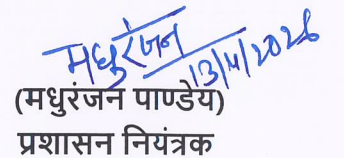 मधुरंजन
13/4/2026
(मधुरंजन पाण्डेय)
प्रशासन नियंत्रक